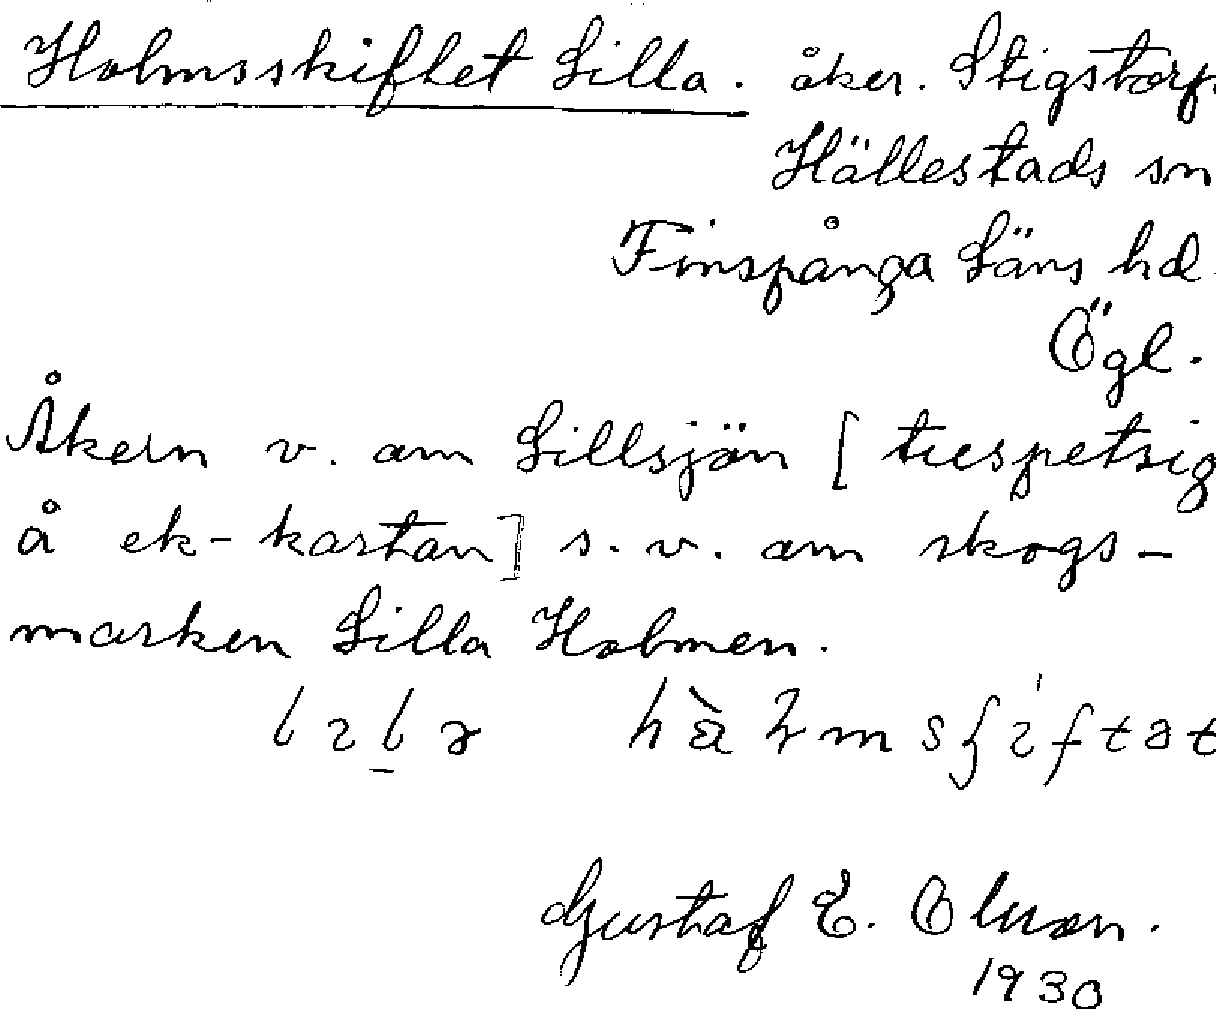 Holmsskiftet Lilla. åker. Stigstorp.
Hällestads sn
Finspånga Läns hd.
Ögl.
Åkern v. om Lillsjön [ trespetsig
å ek-kartan] s.v. om skogs-
marken Lilla Holmen.
Gustaf E.
1930